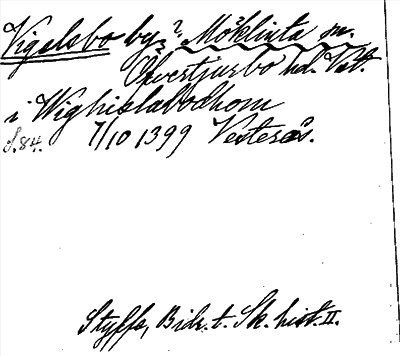 Vigelsbo by? Möklinta sn.
Övertjurbo hd. Vstl.
i Wighislabodhom
S. 84. 7/10 1399 Vesterås.
Styffe, Bidr. t. Sk. hist. II.